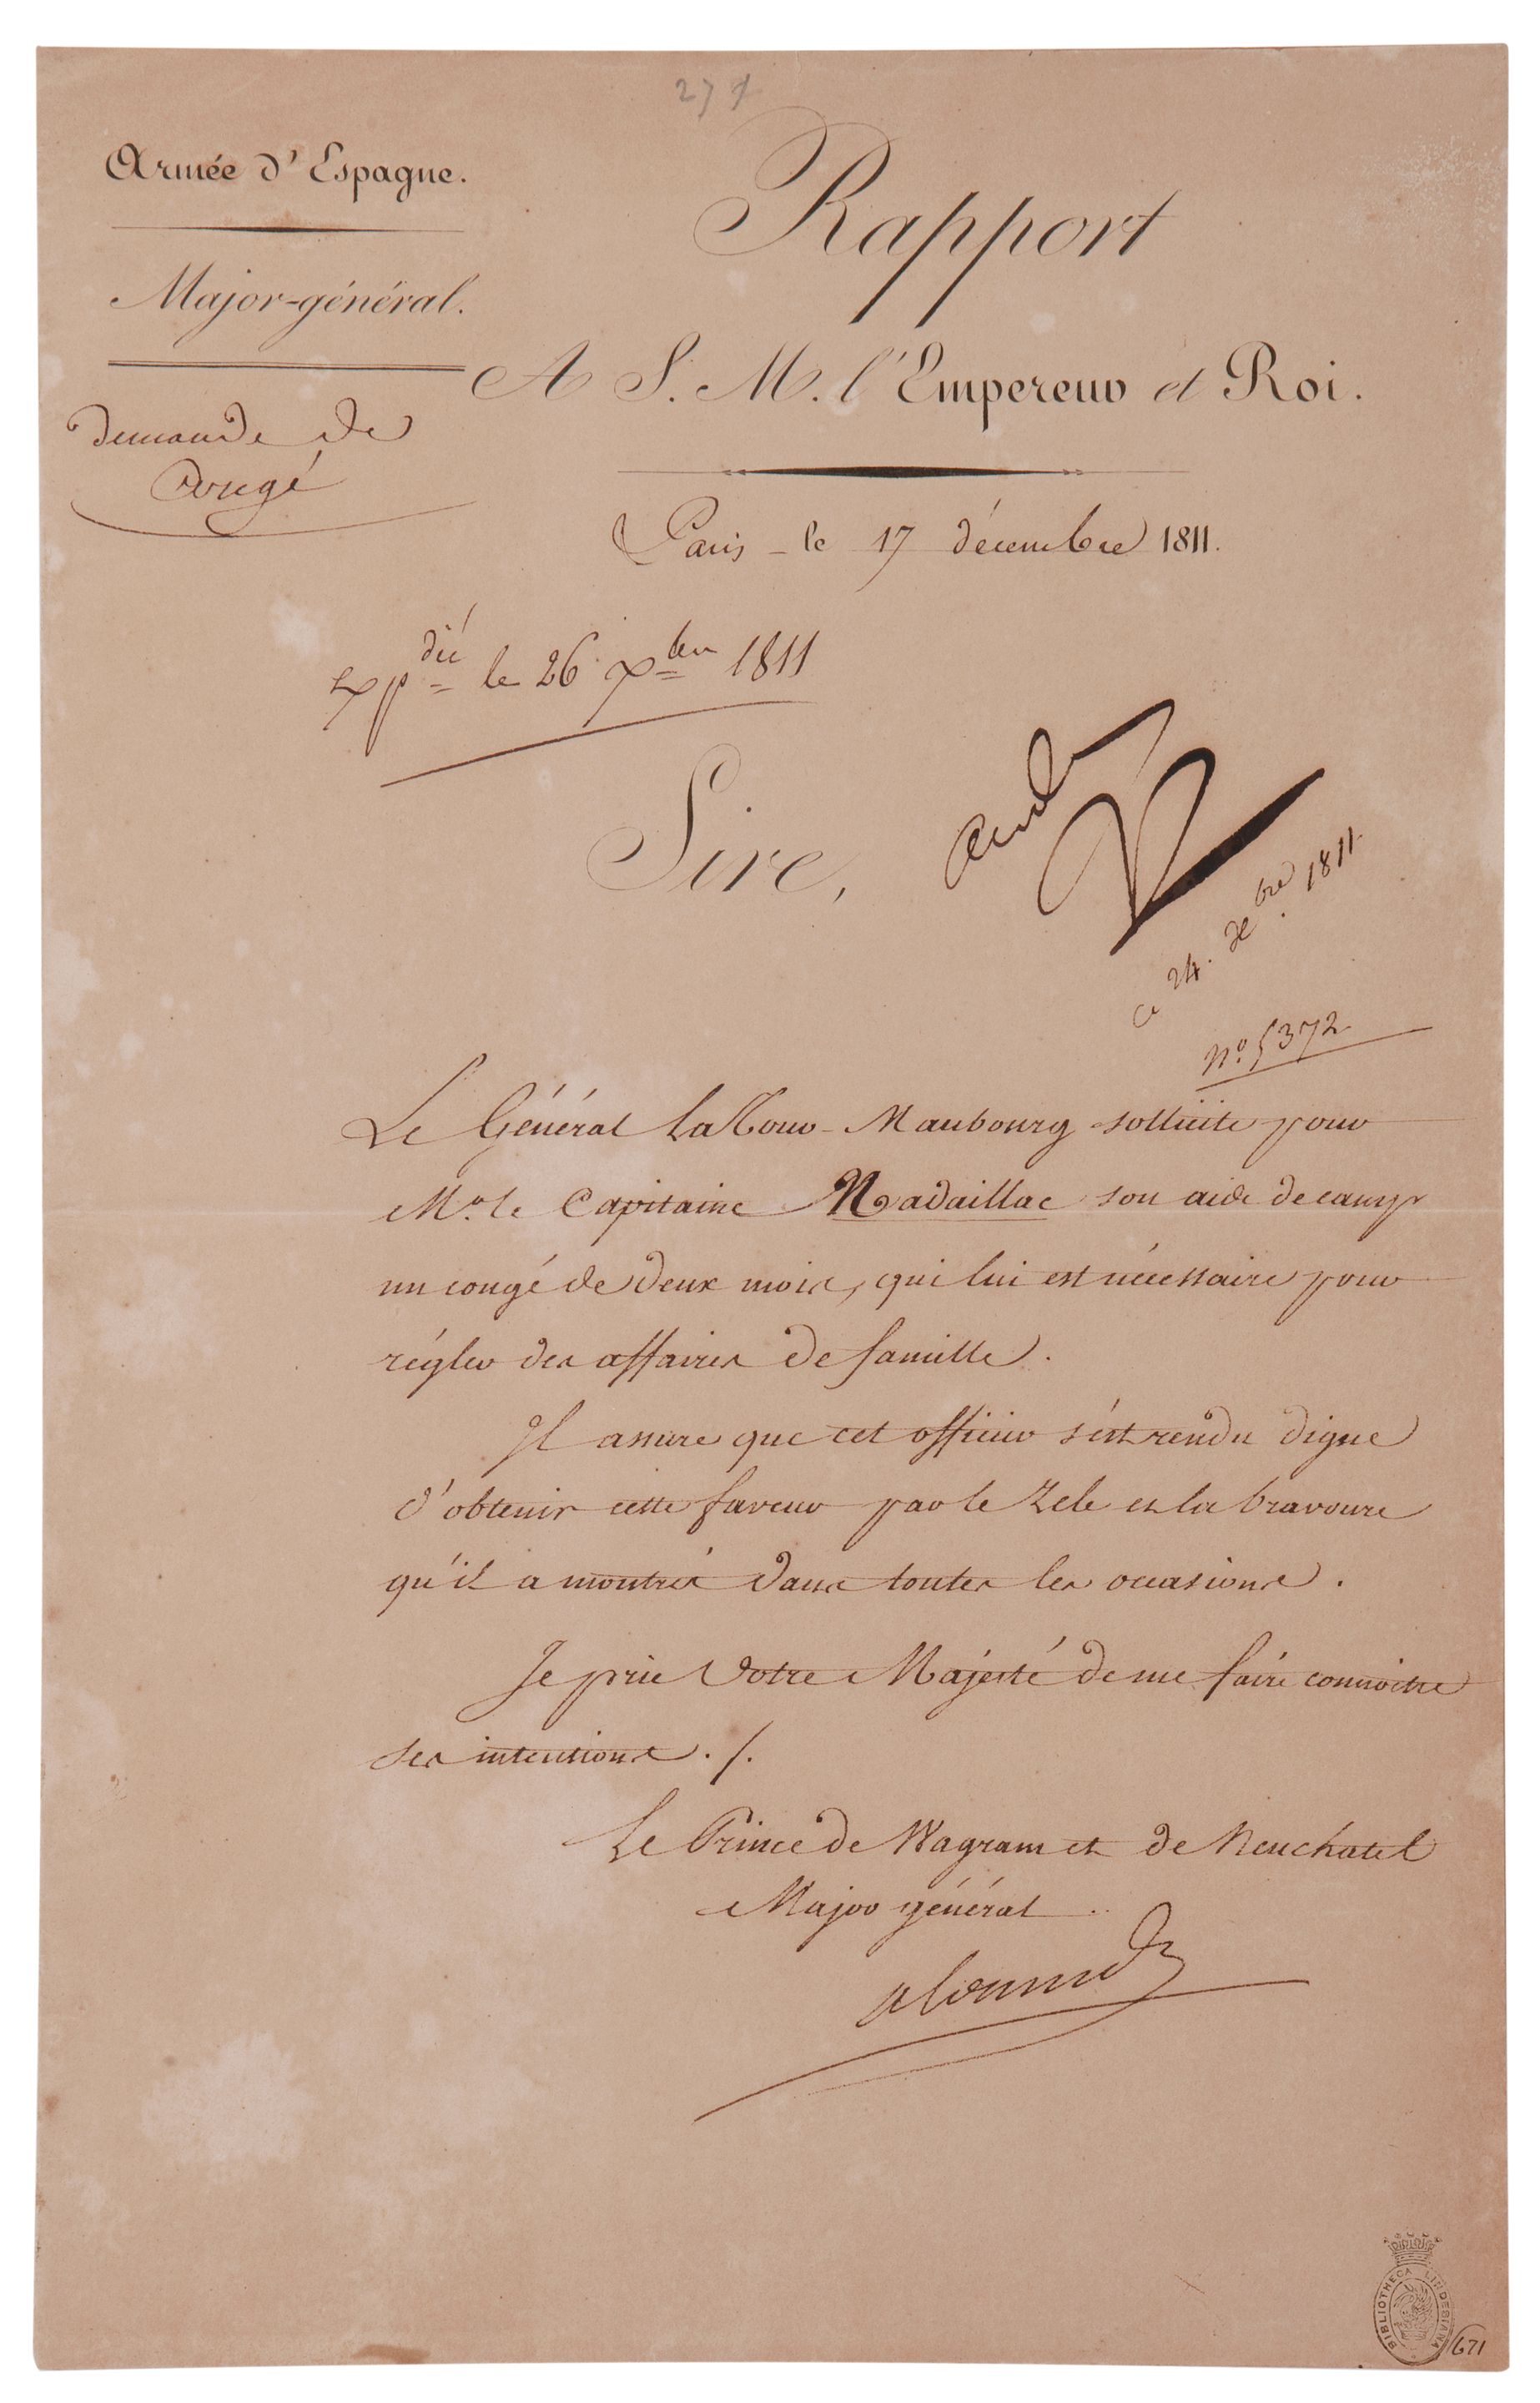 27
Armée d'Espagne.
Major-général.
demande de
Congé
Rapport
A S. M. l'Empereur et Roi.
Paris - le 17 décembre 1811.
expdié le 26 Xbre 1811
Sire,
ce 24. Xbre 1811
N.º 5372
Le Général LaTour-Maubourg sollicite pour
Mr. le Capitaine Nadaillac son aide de camp
un congé de deux mois, qui lui est nécessaire pour
régler des affaires de famille.
Il assure que cet officier s'est rendu digne
d'obtenir cette faveur par le zele et la bravoure
qu'il a montrés dans toutes les occasions.
Je prie Votre Majesté de me faire connoitre
ses intentions. /.
Le Prince de Wagram et de Neuchatel
Major général
Alexandre
BIBLIOTHECA LINDESIANA
671